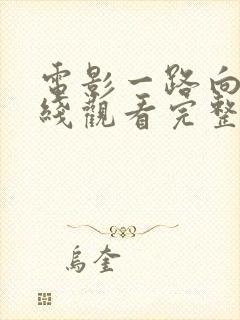 電影一路向
綫觀看完整
烏奎